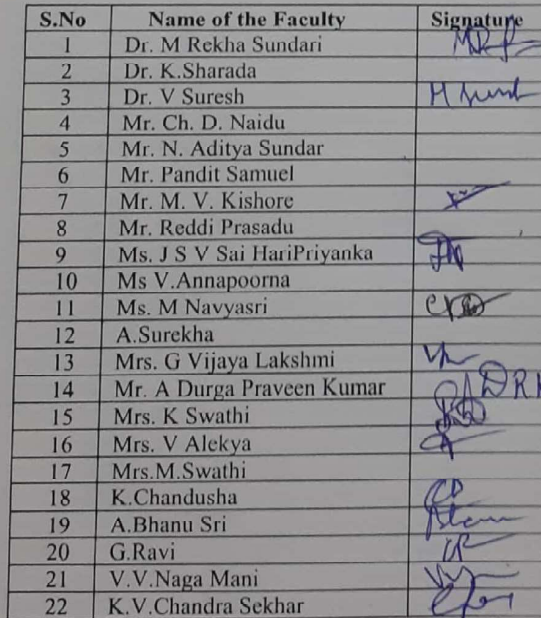 S.No Name of the Faculty Signature
1 Dr. M Rekha Sundari
2 Dr. K.Sharada
3 Dr. V Suresh
4 Mr. Ch. D. Naidu
5 Mr. N. Aditya Sundar
6 Mr. Pandit Samuel
7 Mr. M. V. Kishore
8 Mr. Reddi Prasadu
9 Ms. J S V Sai HariPriyanka
10 Ms V.Annapoorna
11 Ms. M Navyasri
12 A.Surekha
13 Mrs. G Vijaya Lakshmi
14 Mr. A Durga Praveen Kumar
15 Mrs. K Swathi
16 Mrs. V Alekya
17 Mrs.M.Swathi
18 K.Chandusha
19 A.Bhanu Sri
20 G.Ravi
21 V.V.Naga Mani
22 K.V.Chandra Sekhar